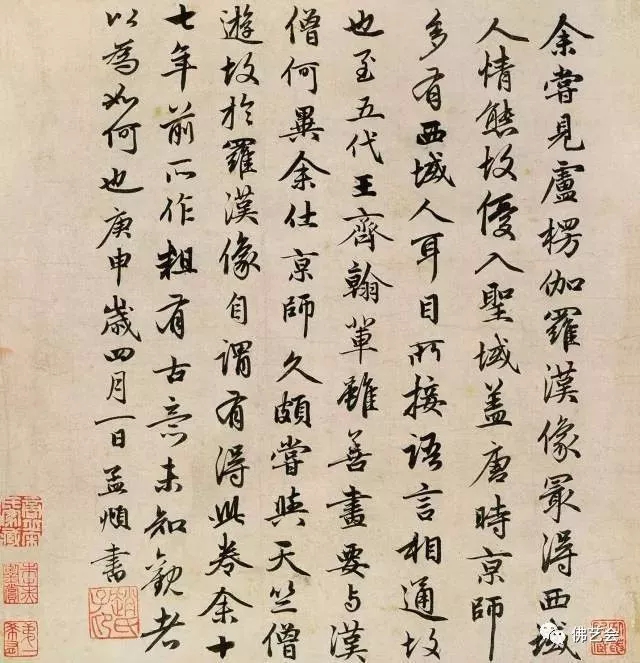 余嘗見盧楞伽羅漢像最得西域
人情態故優入聖域蓋唐時京師
多有西域人耳目所接語言相通故
也至五代王齊翰輩雖善畫要与漢
僧何異余仕京師久頗嘗與天竺僧
遊故於羅漢像自謂有得此卷余十
七年前所作粗有古意未知觀者
以為如何也庚申歲四月一日孟頫書
趙氏子昂
佛艺会